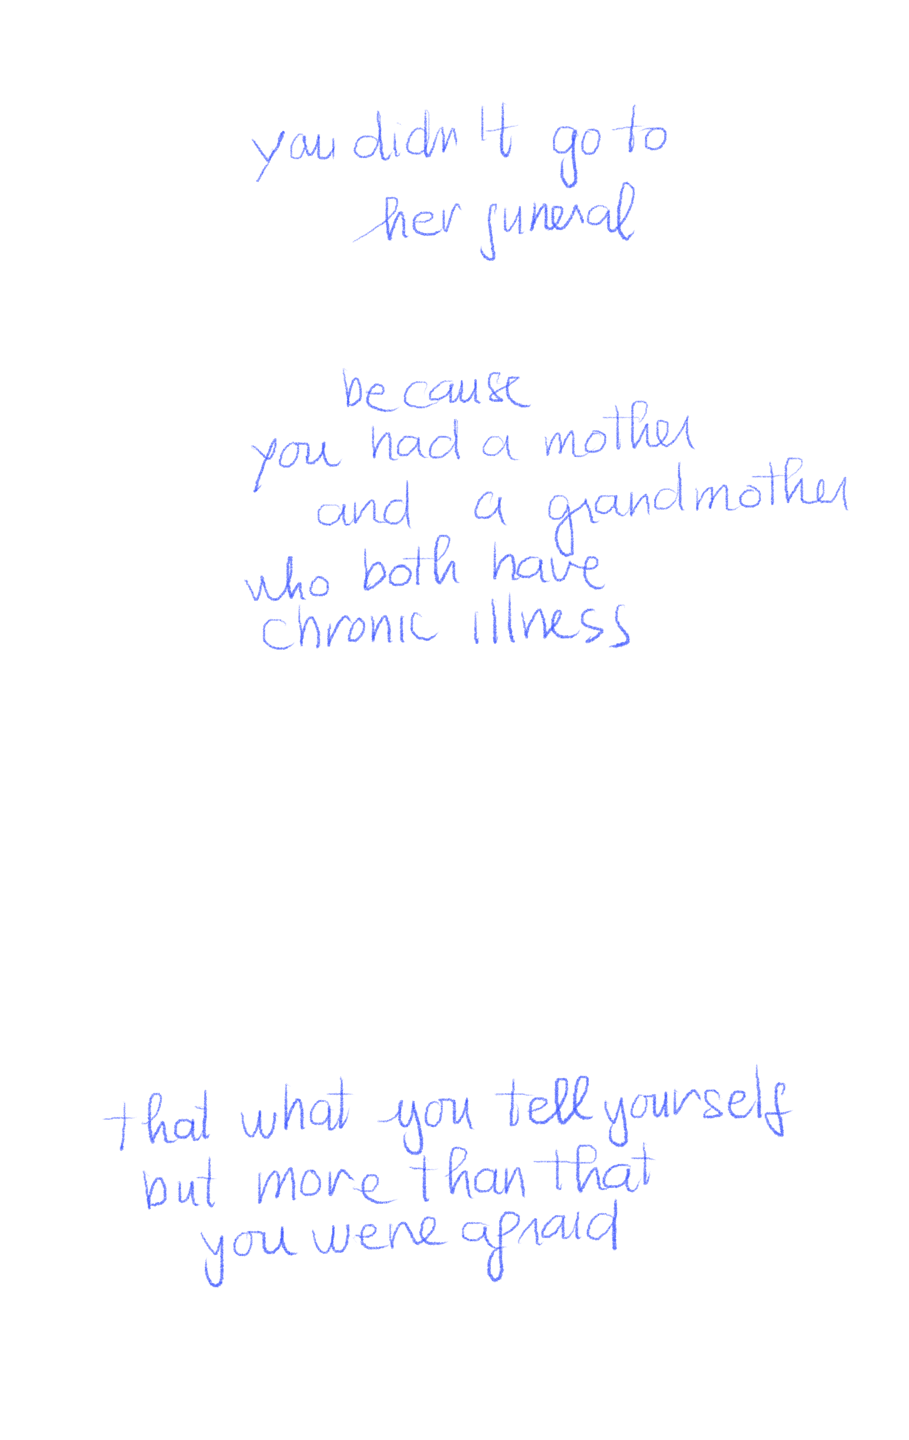 you didn't go to
her funeral
because
you had a mother
and a grandmother
who both have
chronic illness
that what you tell yourself
but more than that
you were afraid